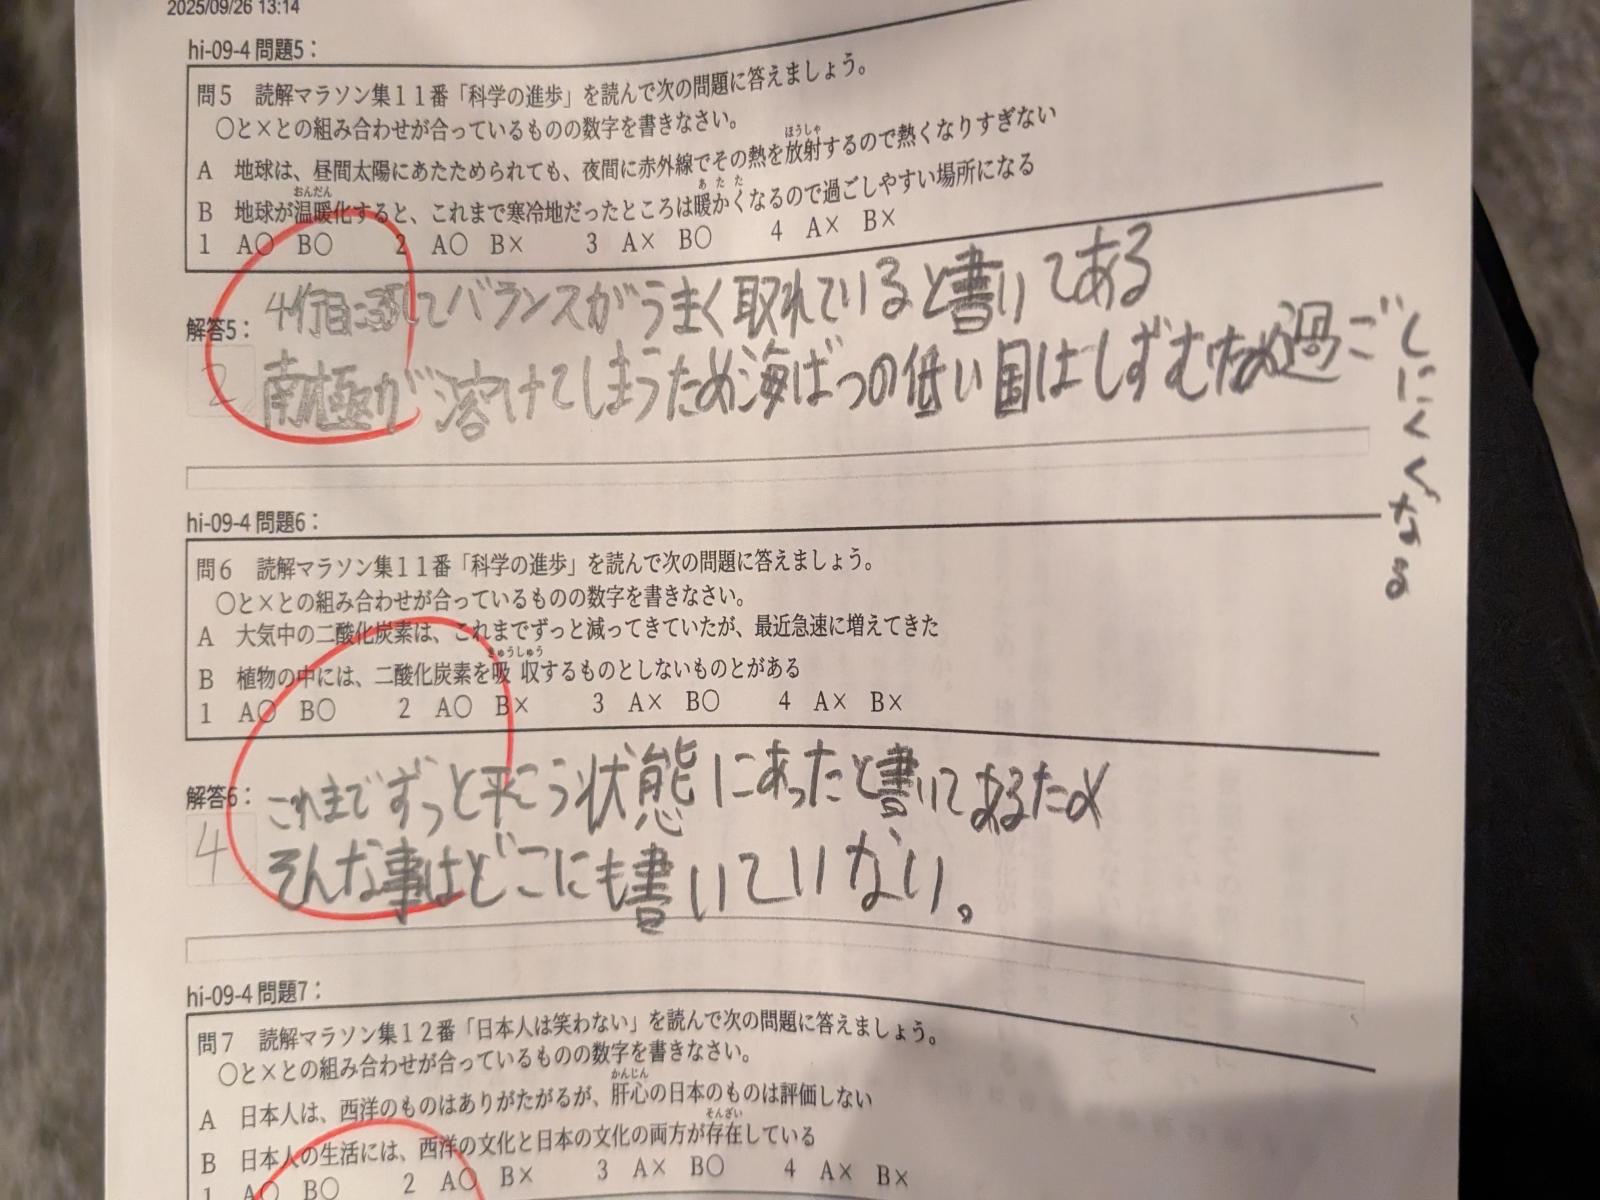 2025/09/26 13:14
hi-09-4 問題5：
問5　読解マラソン集11番「科学の進歩」を読んで次の問題に答えましょう。
○と×との組み合わせが合っているものの数字を書きなさい。
A　地球は、昼間太陽にあたためられても、夜間に赤外線でその熱を放射するので熱くなりすぎない
ほうしゃ
B　地球が温暖化すると、これまで寒冷地だったところは暖かくなるので過ごしやすい場所になる
おんだん　あたた
1　A○　B○　2　A○　B×　3　A×　B○　4　A×　B×
4行目に　してバランスがうまく取れていると書いてある
解答5：
2
南極が溶けてしまうため海ばつの低い国はしずむため過ごしにくくなる
hi-09-4 問題6：
問6　読解マラソン集11番「科学の進歩」を読んで次の問題に答えましょう。
○と×との組み合わせが合っているものの数字を書きなさい。
A　大気中の二酸化炭素は、これまでずっと減ってきていたが、最近急速に増えてきた
きゅうしゅう
B　植物の中には、二酸化炭素を吸収するものとしないものとがある
1　A○　B○　2　A○　B×　3　A×　B○　4　A×　B×
解答6：
4
これまでずっと平こう状態にあったと書いてあるため
そんな事はどこにも書いていない。
hi-09-4 問題7：
問7　読解マラソン集12番「日本人は笑わない」を読んで次の問題に答えましょう。
○と×との組み合わせが合っているものの数字を書きなさい。
かんじん
A　日本人は、西洋のものはありがたがるが、肝心の日本のものは評価しない
そんざい
B　日本人の生活には、西洋の文化と日本の文化の両方が存在している
1　A○　B○　2　A○　B×　3　A×　B○　4　A×　B×